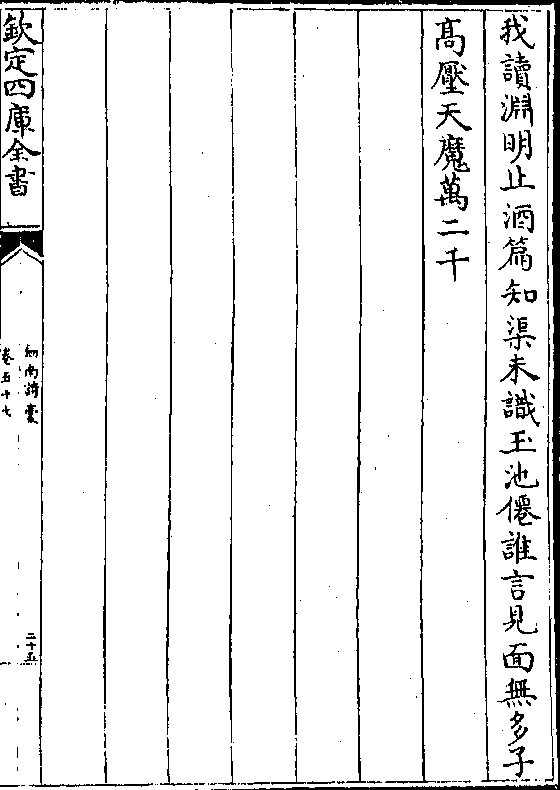 我讀淵明止酒篇知渠未識玉池僊誰言見面無多子
高壓天魔萬二千
欽定四庫全書
劒南詩藁
卷五十七
二十五